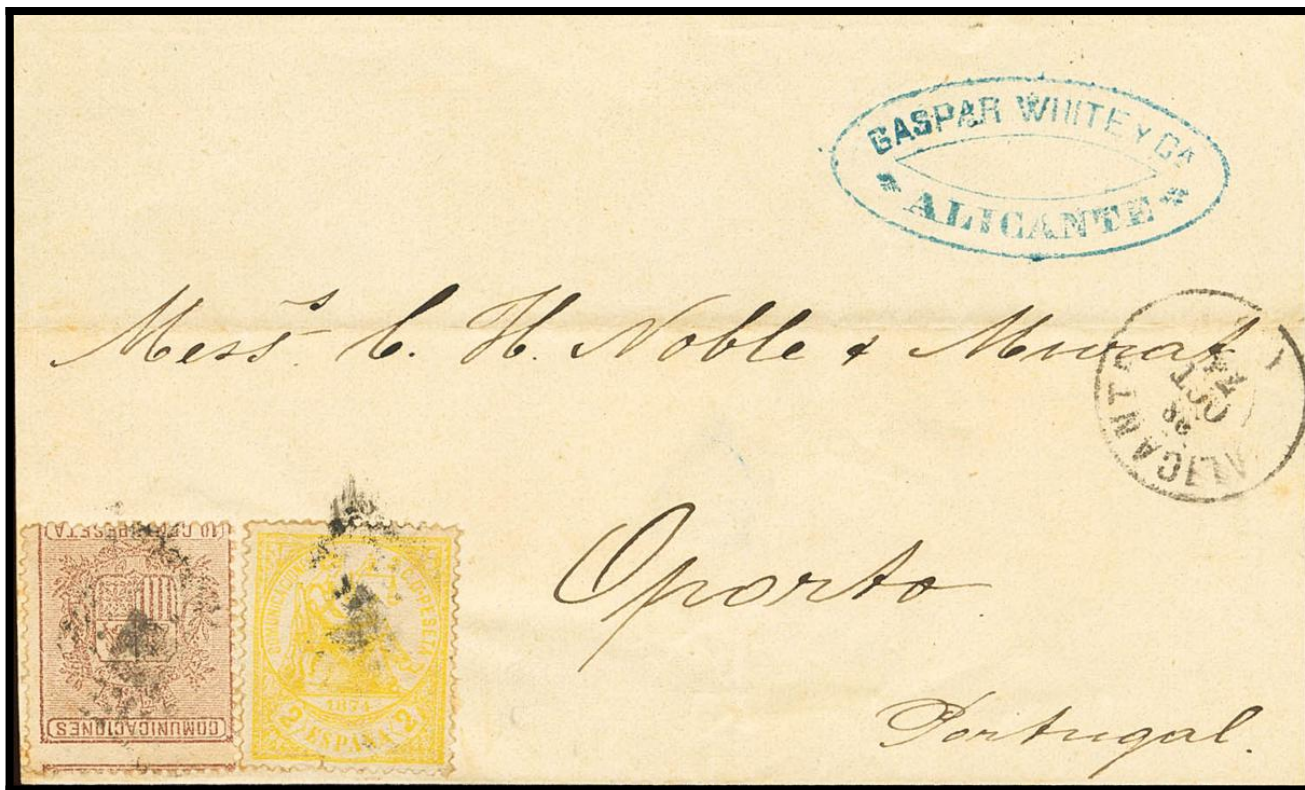 GASPAR WHITE Y CA
ALICANTE
Mess.s C. H. Noble & Murat
ALICANTE
28
OCT
74
Oporto
Portugal.
10 CENT PESETA
COMUNICACIONES
COMUNICACIONES
PESETA
1874
2 ESPAÑA 2